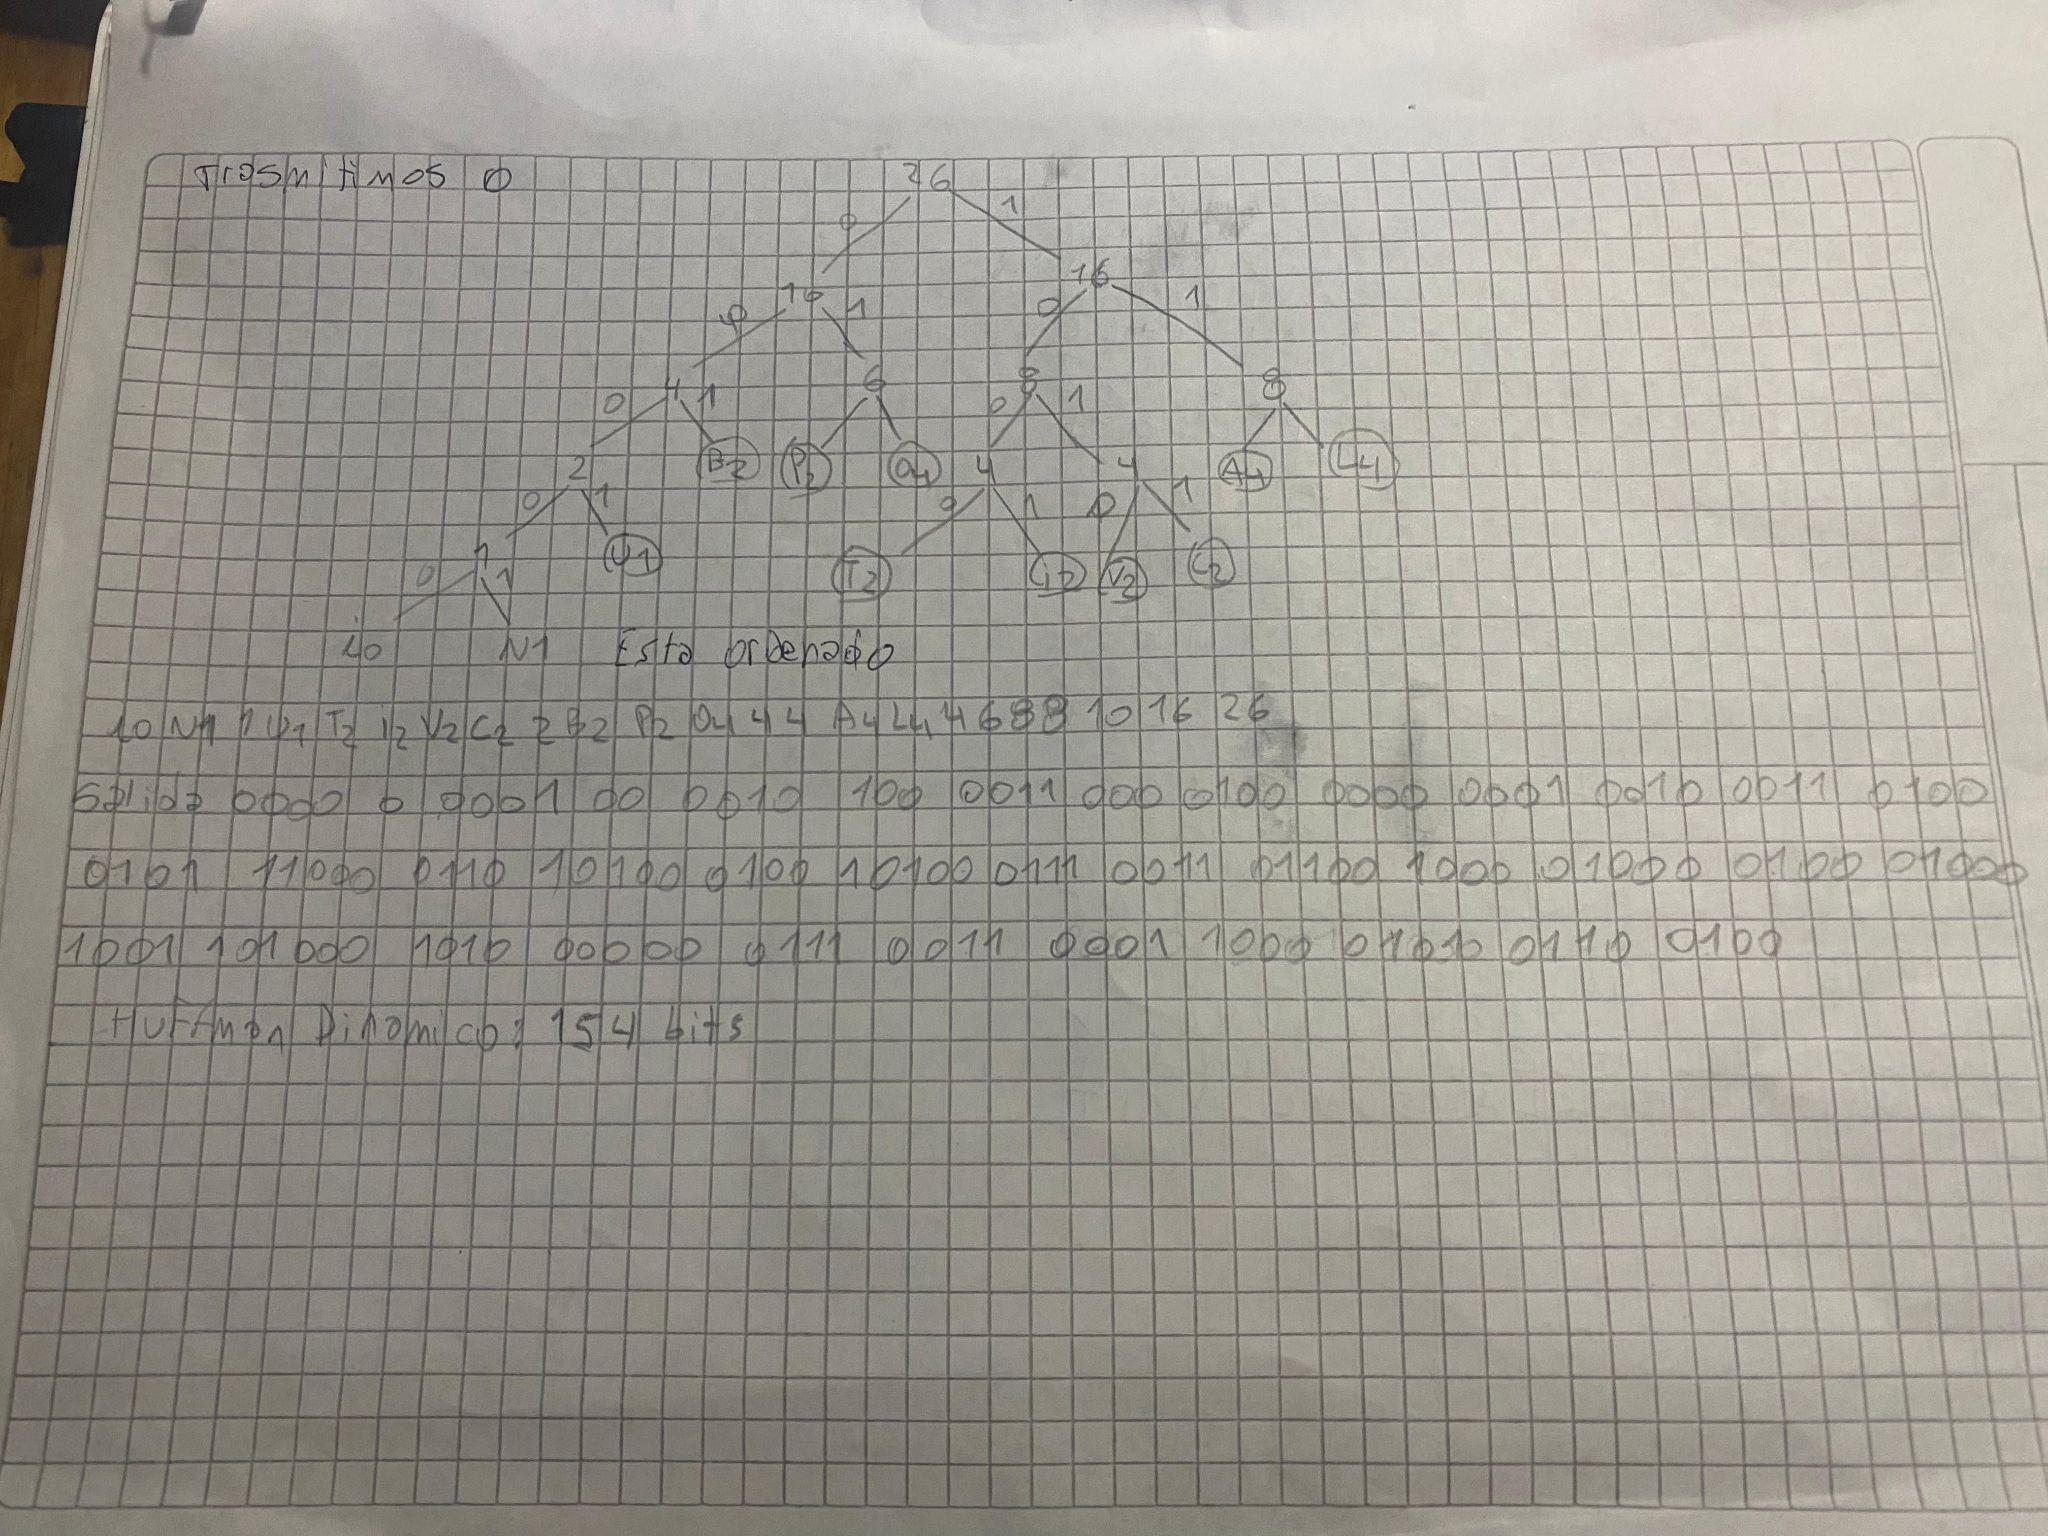 Trasmitimos 0
26
0 1
10 16
0 1 0 1
4 6 8 8
0 1 0 1
2 B2 P2 O4 4 4 A4 L4
0 1 0 1 0 1
1 U1 T2 i2 V2 C2
0 1
io N1 Esta ordenado
io N1 1 U1 T2 i2 V2 C2 2 B2 P2 O4 4 4 A4 L4 4 6 8 8 10 16 26
Salida 0000 0 0001 00 0010 100 0011 000 0100 0000 0001 0010 0011 0100
0101 11000 0110 10100 0100 10100 0111 0011 01100 1000 01000 0100 01000
1001 101000 1010 00000 0111 0011 0001 1000 01010 0110 0100
Huffman Dinamico: 154 bits